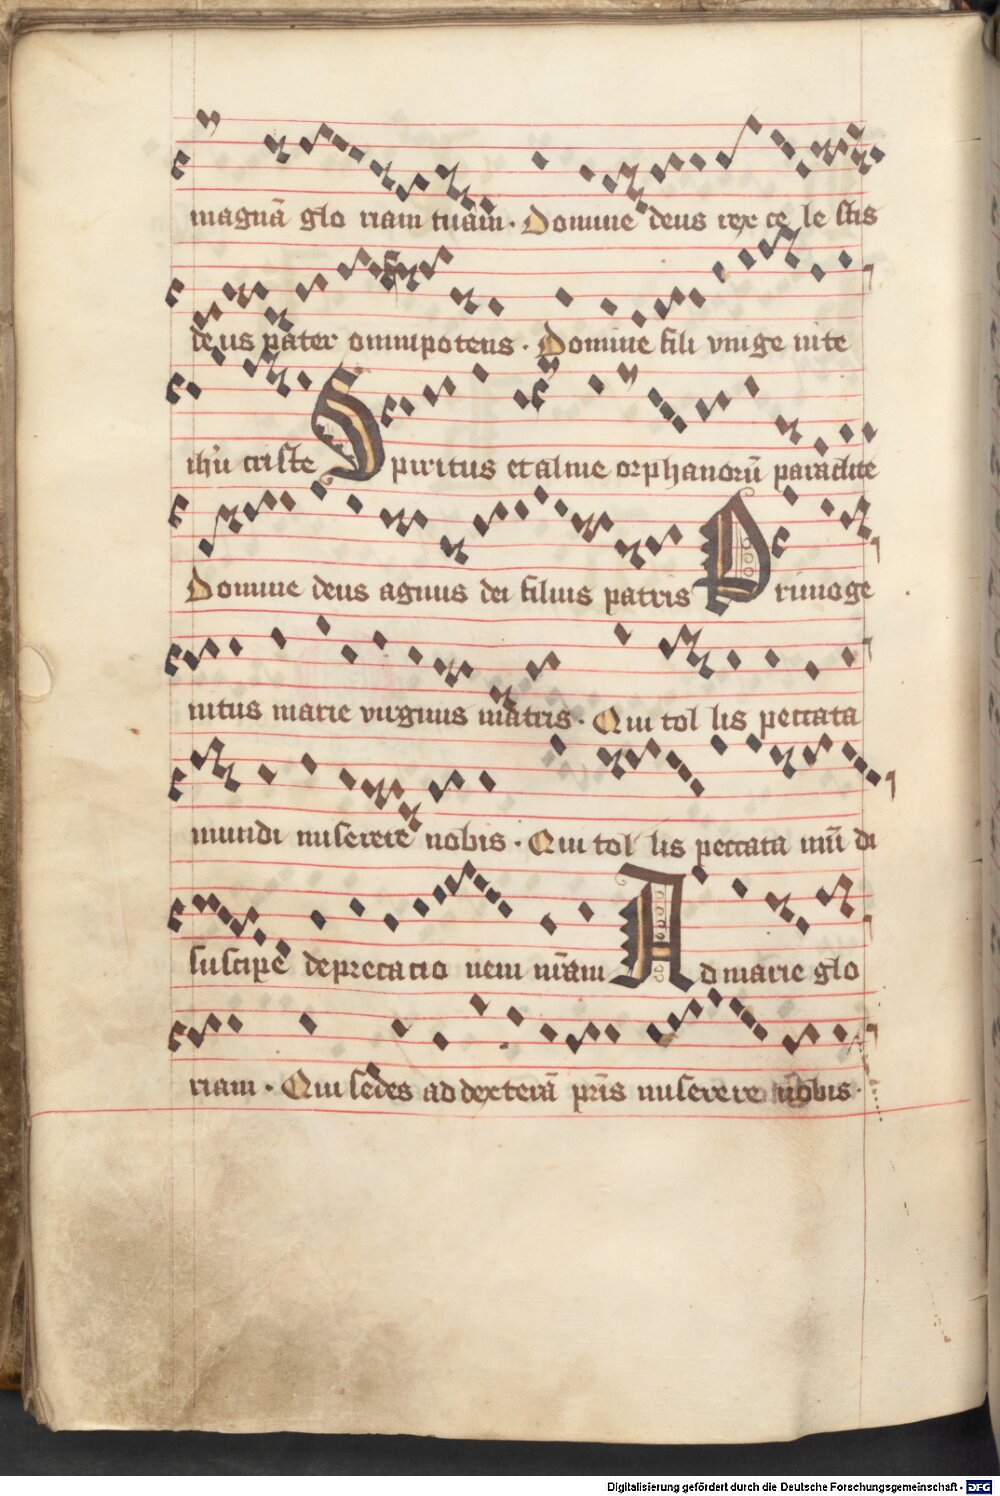 magnā glo riam tuam · Domine deus rex ce le stis
de us pater omnipotens · Domine fili vnige nite
ihū criste Spiritus et alme orphanorū paraclite
Domine deus agnus dei filius patris Primoge
nitus marie virginis matris · Qui tol lis peccata
mundi miserere nobis · Qui tol lis peccata mū di
suscipe deprecatio nem nr̄am Ad marie glo
riam · Qui sedes ad dexterā pr̄is miserere nobis ·
Digitalisierung gefördert durch die Deutsche Forschungsgemeinschaft - DFG